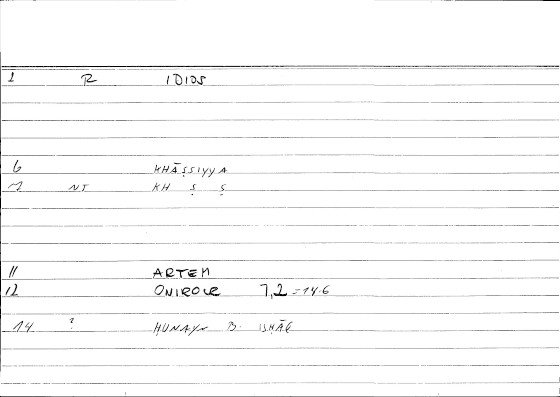 1 R IDIOS
6 KHĀṢṢIYYA
7 NT KH Ṣ Ṣ
11 ARTEM
12 ONIROCR 1,2 = 14.6
14 ? HUNAYN B. ISḤĀQ